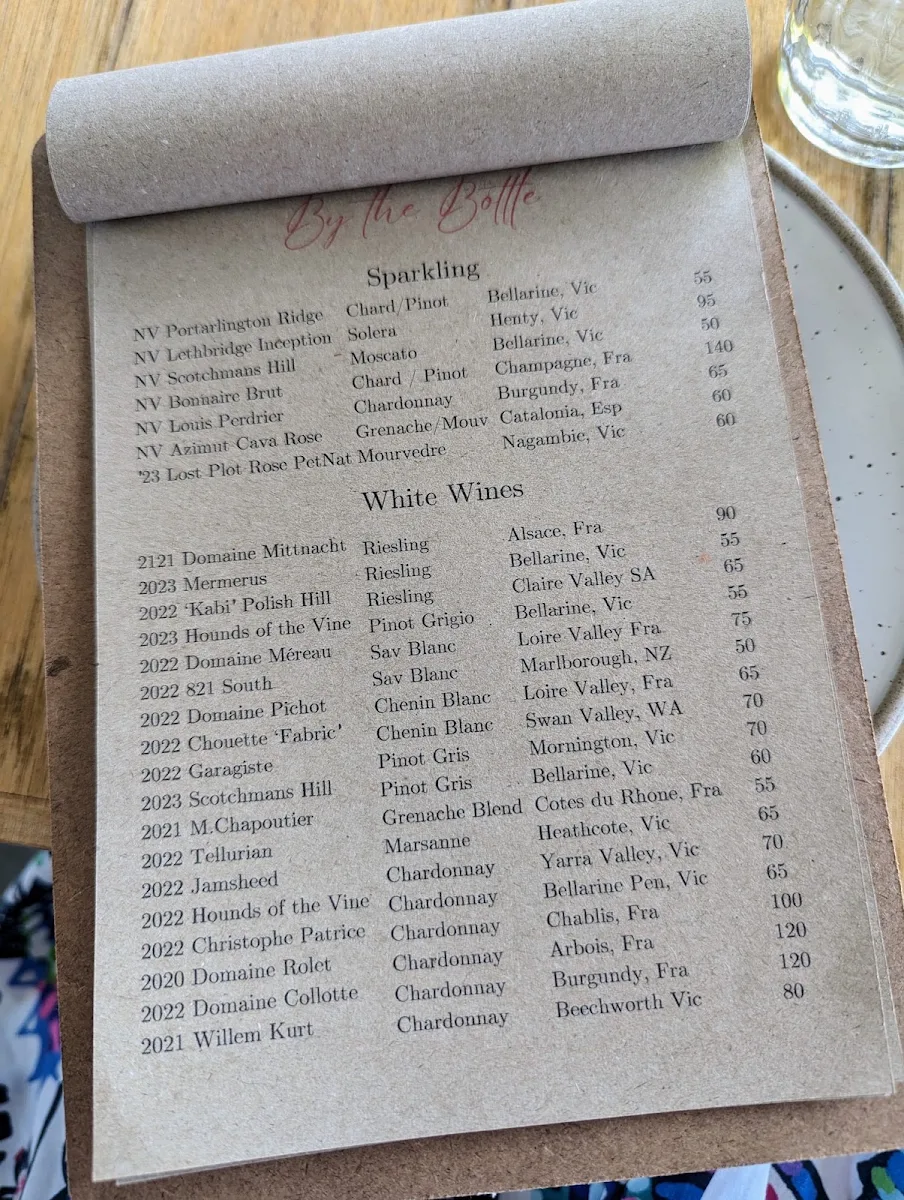 By the Bottle
Sparkling
NV Portarlington Ridge Chard/Pinot Bellarine, Vic 55
NV Lethbridge Inception Solera Henty, Vic 95
NV Scotchmans Hill - Moscato Bellarine, Vic 50
NV Bonnaire Brut Chard / Pinot Champagne, Fra 140
NV Louis Perdrier Chardonnay Burgundy, Fra 65
NV Azimut Cava Rose Grenache/Mouv Catalonia, Esp 60
'23 Lost Plot Rose PetNat Mourvedre Nagambie, Vic 60
White Wines
2121 Domaine Mittnacht Riesling Alsace, Fra 90
2023 Mermerus Riesling Bellarine, Vic 55
2022 ‘Kabi’ Polish Hill Riesling Claire Valley SA 65
2023 Hounds of the Vine Pinot Grigio Bellarine, Vic 55
2022 Domaine Méreau Sav Blanc Loire Valley Fra 75
2022 821 South Sav Blanc Marlborough, NZ 50
2022 Domaine Pichot Chenin Blanc Loire Valley, Fra 65
2022 Chouette ‘Fabric’ Chenin Blanc Swan Valley, WA 70
2022 Garagiste Pinot Gris Mornington, Vic 70
2023 Scotchmans Hill Pinot Gris Bellarine, Vic 60
2021 M.Chapoutier Grenache Blend Cotes du Rhone, Fra 55
2022 Tellurian Marsanne Heathcote, Vic 65
2022 Jamsheed Chardonnay Yarra Valley, Vic 70
2022 Hounds of the Vine Chardonnay Bellarine Pen, Vic 65
2022 Christophe Patrice Chardonnay Chablis, Fra 100
2020 Domaine Rolet Chardonnay Arbois, Fra 120
2022 Domaine Collotte Chardonnay Burgundy, Fra 120
2021 Willem Kurt Chardonnay Beechworth Vic 80